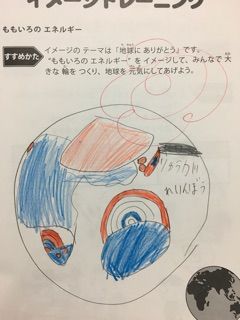 イメージトレーニング
ももいろの エネルギー
すすめかた
イメージの テーマは「地球に ありがとう」です。
“ももいろの エネルギー” を イメージして、みんなで 大
きな 輪を つくり、地球を 元気にしてあげよう。
れいんぼう